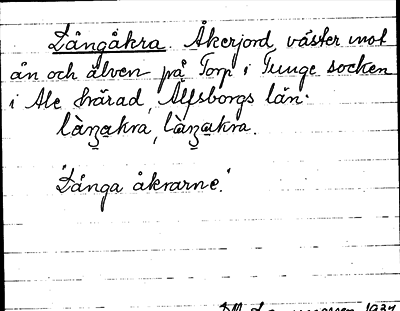 Långåkra. Åkerjord väster mot
ån och älven på Torp i Tunge socken
i Ale härad, Älfsborgs län.
làŋa̲kra, làŋa̲kra.
"Långa åkrarne."
1937